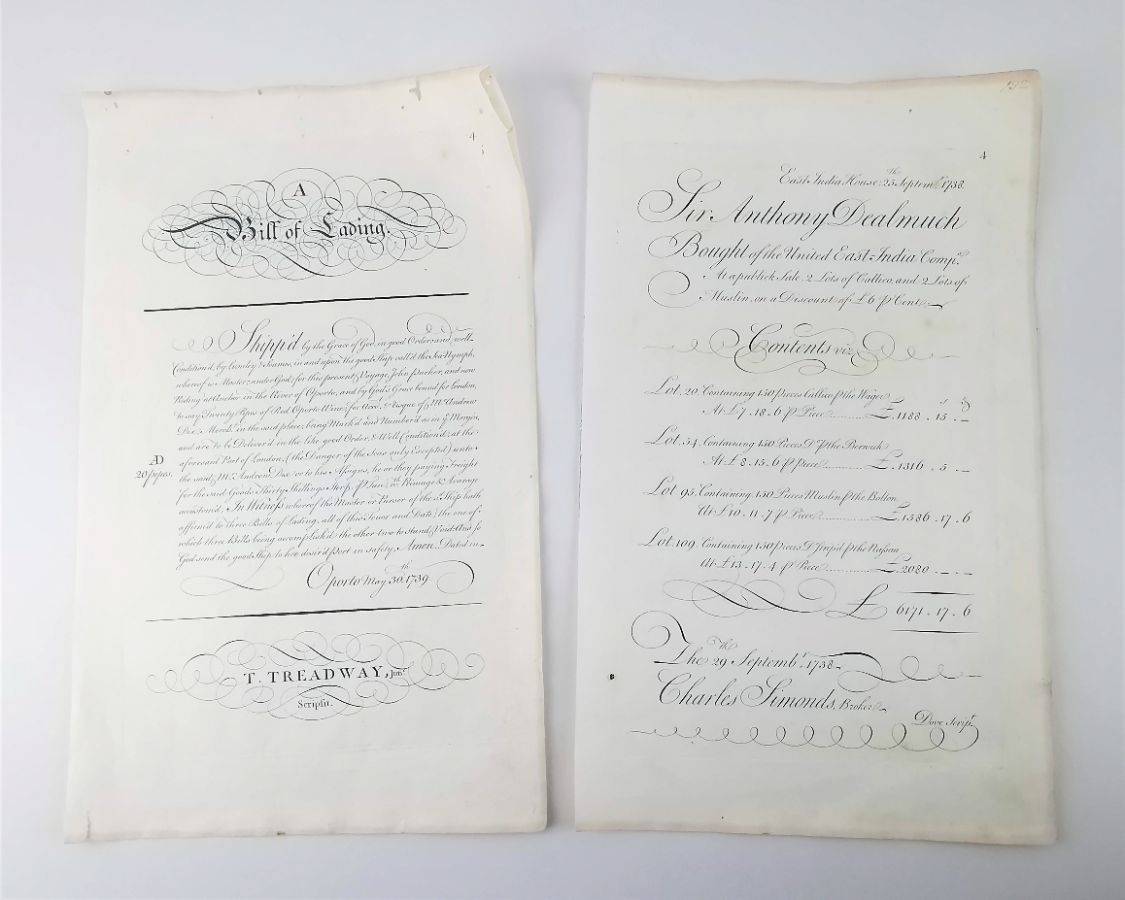 4
A
Bill of Lading.
Shipp'd by the Grace of God, in good Order and well
Condition'd, by Comley & Soames, in and upon the good Ship call'd the Sea Nymph,
whereof is Master, under God, for this present Voyage, John Parker, and now
Riding at Anchor in the River of Oporto, and by God's Grace bound for London,
to say Twenty Pipes of Red Oporto Wine, for Acco. & Risque of Mr. Andrew
Dix Mercht. in the said place, being Mark'd and Number'd as in ye Margin,
and are to be Deliver'd in the like good Order, & Well Condition'd, at the
AD
20 pipes.
aforesaid Port of London, (the Danger of the Seas only Excepted) unto
the said Mr. Andrew Dix or to his Assigns, he or they paying Freight
for the said Goods Thirty Shillings Sterg. p Tun wth. Primage & Avarage
accustom'd. In Witness whereof the Master or Purser of the sd. Ship hath
affirm'd to three Bills of Lading, all of this Tenor and Date, the one of
which three Bills being accomplish'd, the other two to stand Void. And so
God send the good Ship to her desir'd Port in safety, Amen. Dated in
Oporto May 30th. 1739.
T. TREADWAY, Junr.
Scripsit.
4
East India House The 25 Septembr. 1738.
Sir Anthony Dealmuch
Bought of the United East-India Compy.
At a publick Sale, 2 Lots of Callico, and 2 Lots of
Muslin, on a Discount of £6 p Cent.
Contents viz.
Lot. 20. Containing 150 Pieces Callico p the Wager
At £7.18.6 p Piece £.1188.15.-
Lot. 54. Containing 150 Pieces Do. p the Berwick
At £8.15.6 p piece £.1316.5.-
Lot 95. Containing 150 Pieces Muslin p the Bolton
At £10.11.7 p Piece £.1586.17.6
Lot. 109. Containing 150 pieces Do. Strip'd p the Nassau
At £13.17.4 p Piece £.2080.-.-
£ 6171.17.6
The 29 Septembr. 1738
Charles Simonds, Broker
Dove Script.